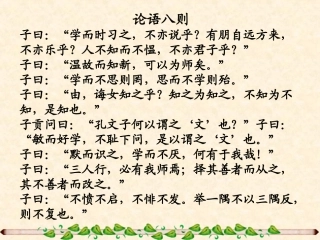 论语八则
子曰：“学而时习之，不亦说乎？有朋自远方来，
不亦乐乎？人不知而不愠，不亦君子乎？”
子曰：“温故而知新，可以为师矣。”
子曰：“学而不思则罔，思而不学则殆。”
子曰：“由，诲女知之乎？知之为知之，不知为不
知，是知也。”
子贡问曰：“孔文子何以谓之‘文’也？”子曰：
“敏而好学，不耻下问，是以谓之‘文’也。”
子曰：“默而识之，学而不厌，何有于我哉！”
子曰：“三人行，必有我师焉；择其善者而从之，
其不善者而改之。”
子曰：“不愤不启，不悱不发。举一隅不以三隅反，
则不复也。”